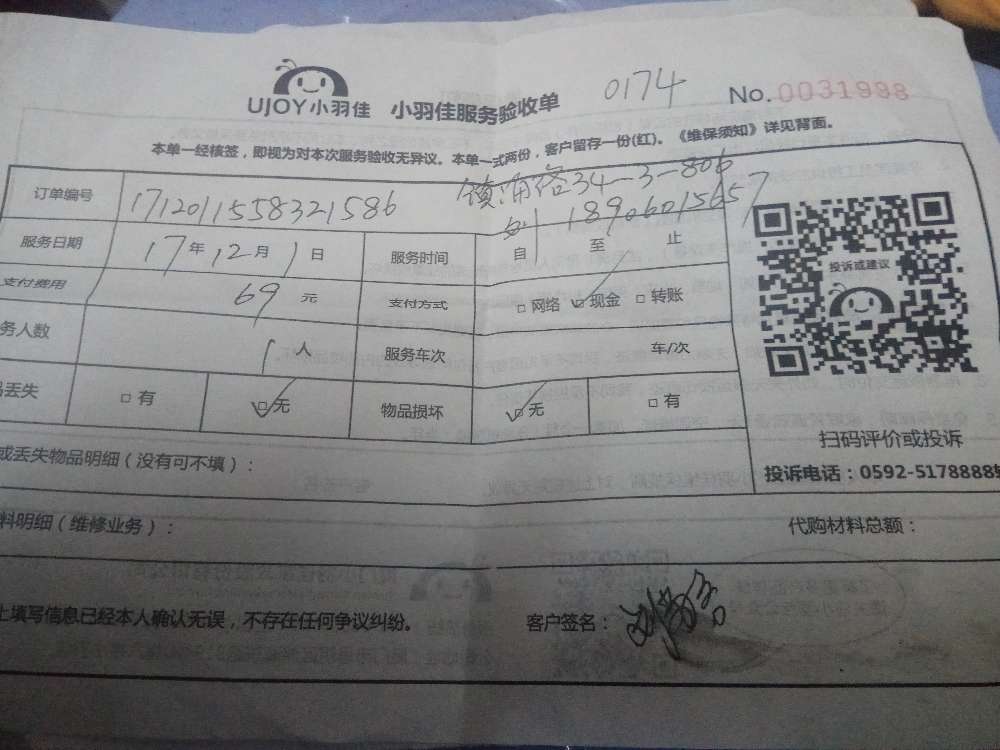 UJOY小羽佳 小羽佳服务验收单 0174 No.0031998
本单一经核签，即视为对本次服务验收无异议。本单一式两份，客户留存一份(红)。《维保须知》详见背面。
34-3-806
订单编号 1712011558321586 刘 18906015657
服务日期 17年12月1日 服务时间 自 至 止
支付费用 69元 支付方式 □网络 ☑现金 □转账
务人数 1人 服务车次 车/次
丢失 □有 ☑无 物品损坏 ☑无 □有
投诉或建议
扫码评价或投诉
投诉电话：0592-5178888
或丢失物品明细（没有可不填）：
料明细（维修业务）： 代购材料总额：
上填写信息已经本人确认无误，不存在任何争议纠纷。 客户签名：